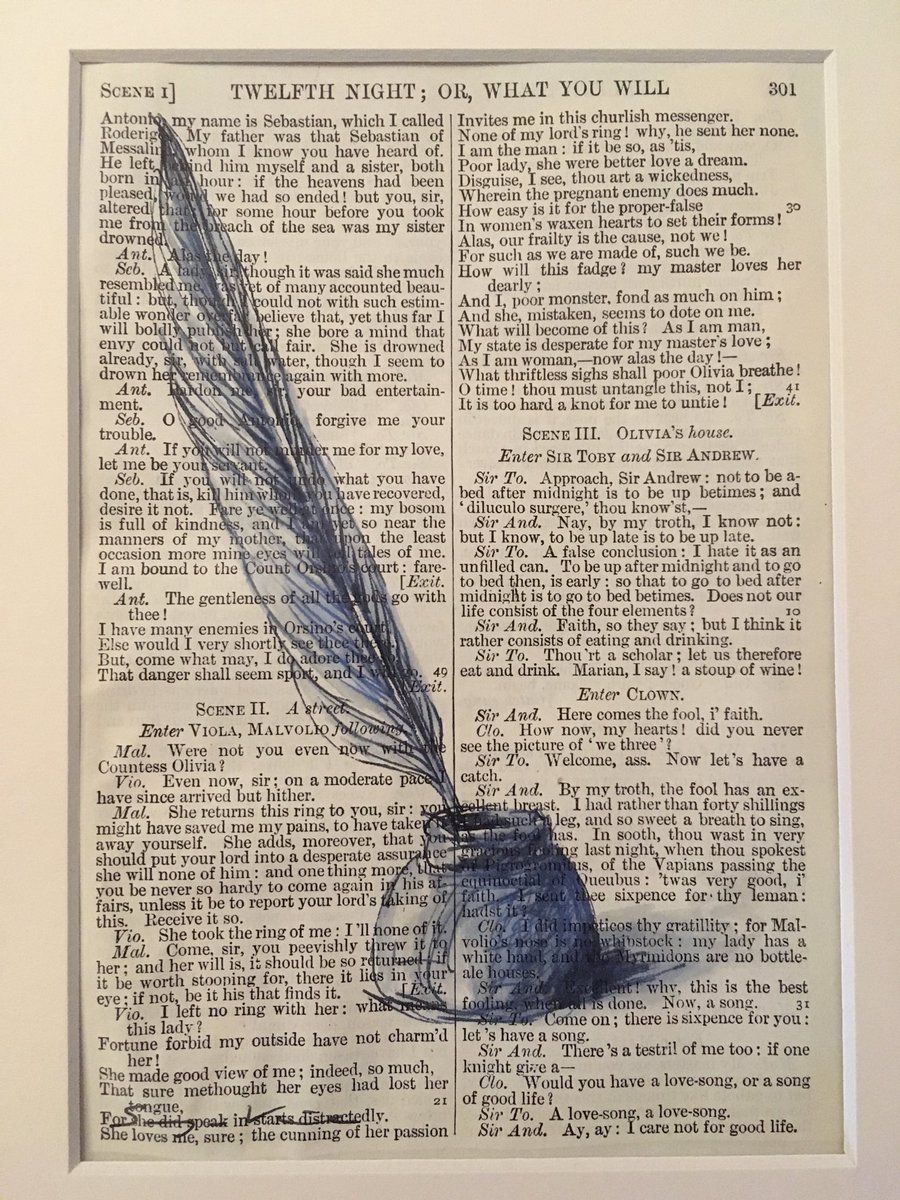 SCENE I] TWELFTH NIGHT; OR, WHAT YOU WILL 301
Antonio, my name is Sebastian, which I called
Roderigo. My father was that Sebastian of
Messaline, whom I know you have heard of.
He left behind him myself and a sister, both
born in an hour: if the heavens had been
pleased, would we had so ended! but you, sir,
altered that; for some hour before you took
me from the breach of the sea was my sister
drowned.
Ant. Alas the day!
Seb. A lady, sir, though it was said she much
resembled me, was yet of many accounted beau-
tiful: but, though I could not with such estim-
able wonder overfar believe that, yet thus far I
will boldly publish her; she bore a mind that
envy could not but call fair. She is drowned
already, sir, with salt water, though I seem to
drown her remembrance again with more.
Ant. Pardon me, sir, your bad entertain-
ment.
Seb. O good Antonio, forgive me your
trouble.
Ant. If you will not murder me for my love,
let me be your servant.
Seb. If you will not undo what you have
done, that is, kill him whom you have recovered,
desire it not. Fare ye well at once: my bosom
is full of kindness, and I am yet so near the
manners of my mother, that upon the least
occasion more mine eyes will tell tales of me.
I am bound to the Count Orsino's court: fare-
well. [Exit.
Ant. The gentleness of all the gods go with
thee!
I have many enemies in Orsino's court,
Else would I very shortly see thee there.
But, come what may, I do adore thee so,
That danger shall seem sport, and I will go. 49
Exit.
SCENE II. A street.
Enter VIOLA, MALVOLIO following.
Mal. Were not you even now with the
Countess Olivia?
Vio. Even now, sir; on a moderate pace I
have since arrived but hither.
Mal. She returns this ring to you, sir: you
might have saved me my pains, to have taken it
away yourself. She adds, moreover, that you
should put your lord into a desperate assurance
she will none of him: and one thing more, that
you be never so hardy to come again in his af-
fairs, unless it be to report your lord's taking of
this. Receive it so.
Vio. She took the ring of me: I'll none of it.
Mal. Come, sir, you peevishly threw it to
her; and her will is, it should be so returned: if
it be worth stooping for, there it lies in your
eye; if not, be it his that finds it. [Exit.
Vio. I left no ring with her: what means
this lady?
Fortune forbid my outside have not charm'd
her!
She made good view of me; indeed, so much,
That sure methought her eyes had lost her
tongue, 21
For she did speak in starts distractedly.
She loves me, sure; the cunning of her passion
Invites me in this churlish messenger.
None of my lord's ring! why, he sent her none.
I am the man: if it be so, as 'tis,
Poor lady, she were better love a dream.
Disguise, I see, thou art a wickedness,
Wherein the pregnant enemy does much.
How easy is it for the proper-false 30
In women's waxen hearts to set their forms!
Alas, our frailty is the cause, not we!
For such as we are made of, such we be.
How will this fadge? my master loves her
dearly;
And I, poor monster, fond as much on him;
And she, mistaken, seems to dote on me.
What will become of this? As I am man,
My state is desperate for my master's love;
As I am woman,—now alas the day!—
What thriftless sighs shall poor Olivia breathe!
O time! thou must untangle this, not I; 41
It is too hard a knot for me to untie! [Exit.
SCENE III. OLIVIA'S house.
Enter SIR TOBY and SIR ANDREW.
Sir To. Approach, Sir Andrew: not to be a-
bed after midnight is to be up betimes; and
'diluculo surgere,' thou know'st,—
Sir And. Nay, by my troth, I know not:
but I know, to be up late is to be up late.
Sir To. A false conclusion: I hate it as an
unfilled can. To be up after midnight and to go
to bed then, is early: so that to go to bed after
midnight is to go to bed betimes. Does not our
life consist of the four elements? 10
Sir And. Faith, so they say; but I think it
rather consists of eating and drinking.
Sir To. Thou'rt a scholar; let us therefore
eat and drink. Marian, I say! a stoup of wine!
Enter CLOWN.
Sir And. Here comes the fool, i' faith.
Clo. How now, my hearts! did you never
see the picture of 'we three'?
Sir To. Welcome, ass. Now let's have a
catch.
Sir And. By my troth, the fool has an ex-
cellent breast. I had rather than forty shillings
I had such a leg, and so sweet a breath to sing,
as the fool has. In sooth, thou wast in very
gracious fooling last night, when thou spokest
of Pigrogromitus, of the Vapians passing the
equinoctial of Queubus: 'twas very good, i'
faith. I sent thee sixpence for thy leman:
hadst it?
Clo. I did impeticos thy gratillity; for Mal-
volio's nose is no whipstock: my lady has a
white hand, and the Myrmidons are no bottle-
ale houses.
Sir And. Excellent! why, this is the best
fooling, when all is done. Now, a song. 31
Sir To. Come on; there is sixpence for you:
let's have a song.
Sir And. There's a testril of me too: if one
knight give a—
Clo. Would you have a love-song, or a song
of good life?
Sir To. A love-song, a love-song.
Sir And. Ay, ay: I care not for good life.